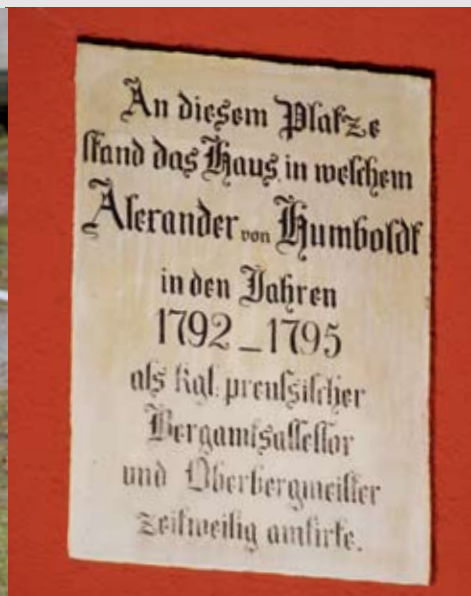 An diesem Platze
stand das Haus, in welchem
Alexander von Humboldt
in den Jahren
1792 – 1795
als kgl. preussischer
Bergamtsassessor
und Oberbergmeister
zeitweilig amtirte.